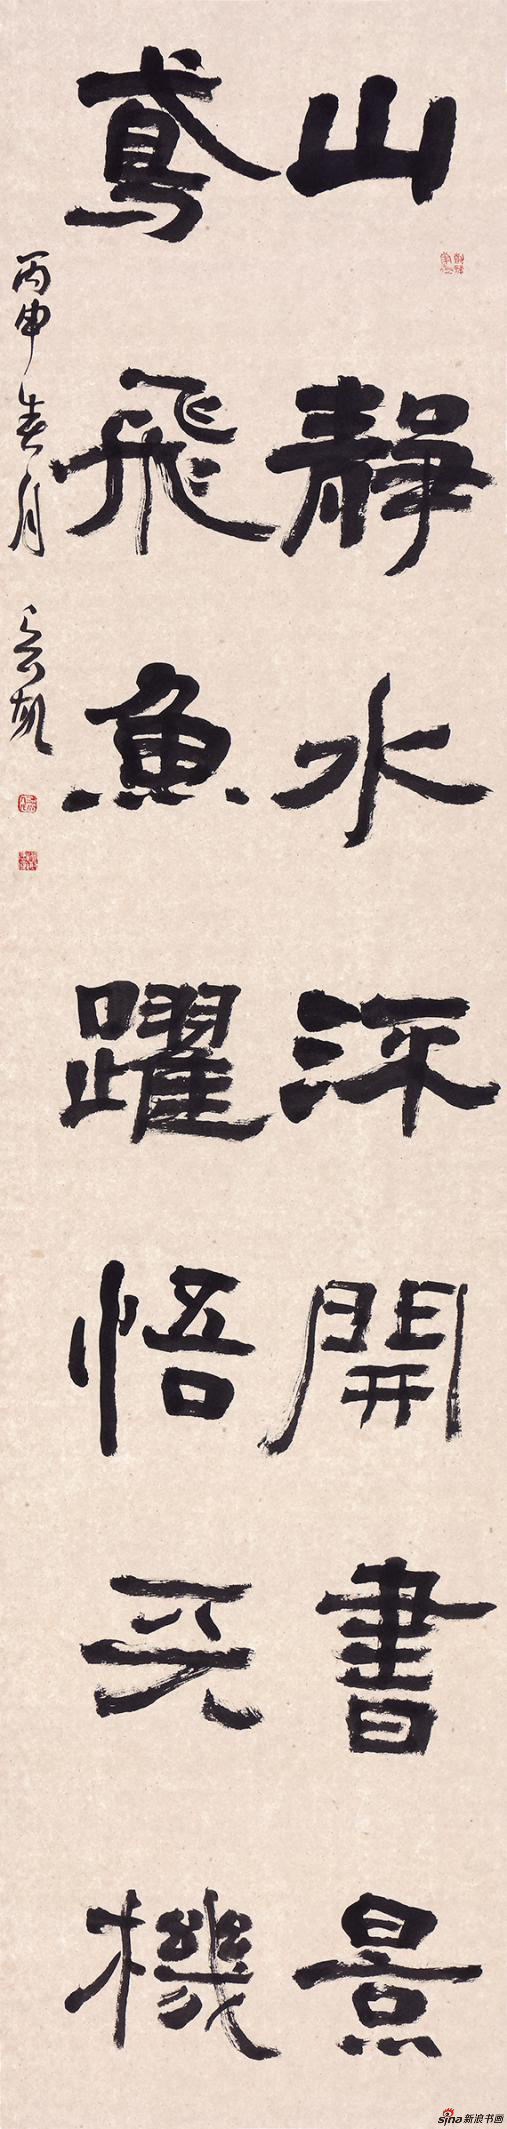 山靜水流開書景
鳶飛魚躍悟天機
丙申春月
sina新浪书画